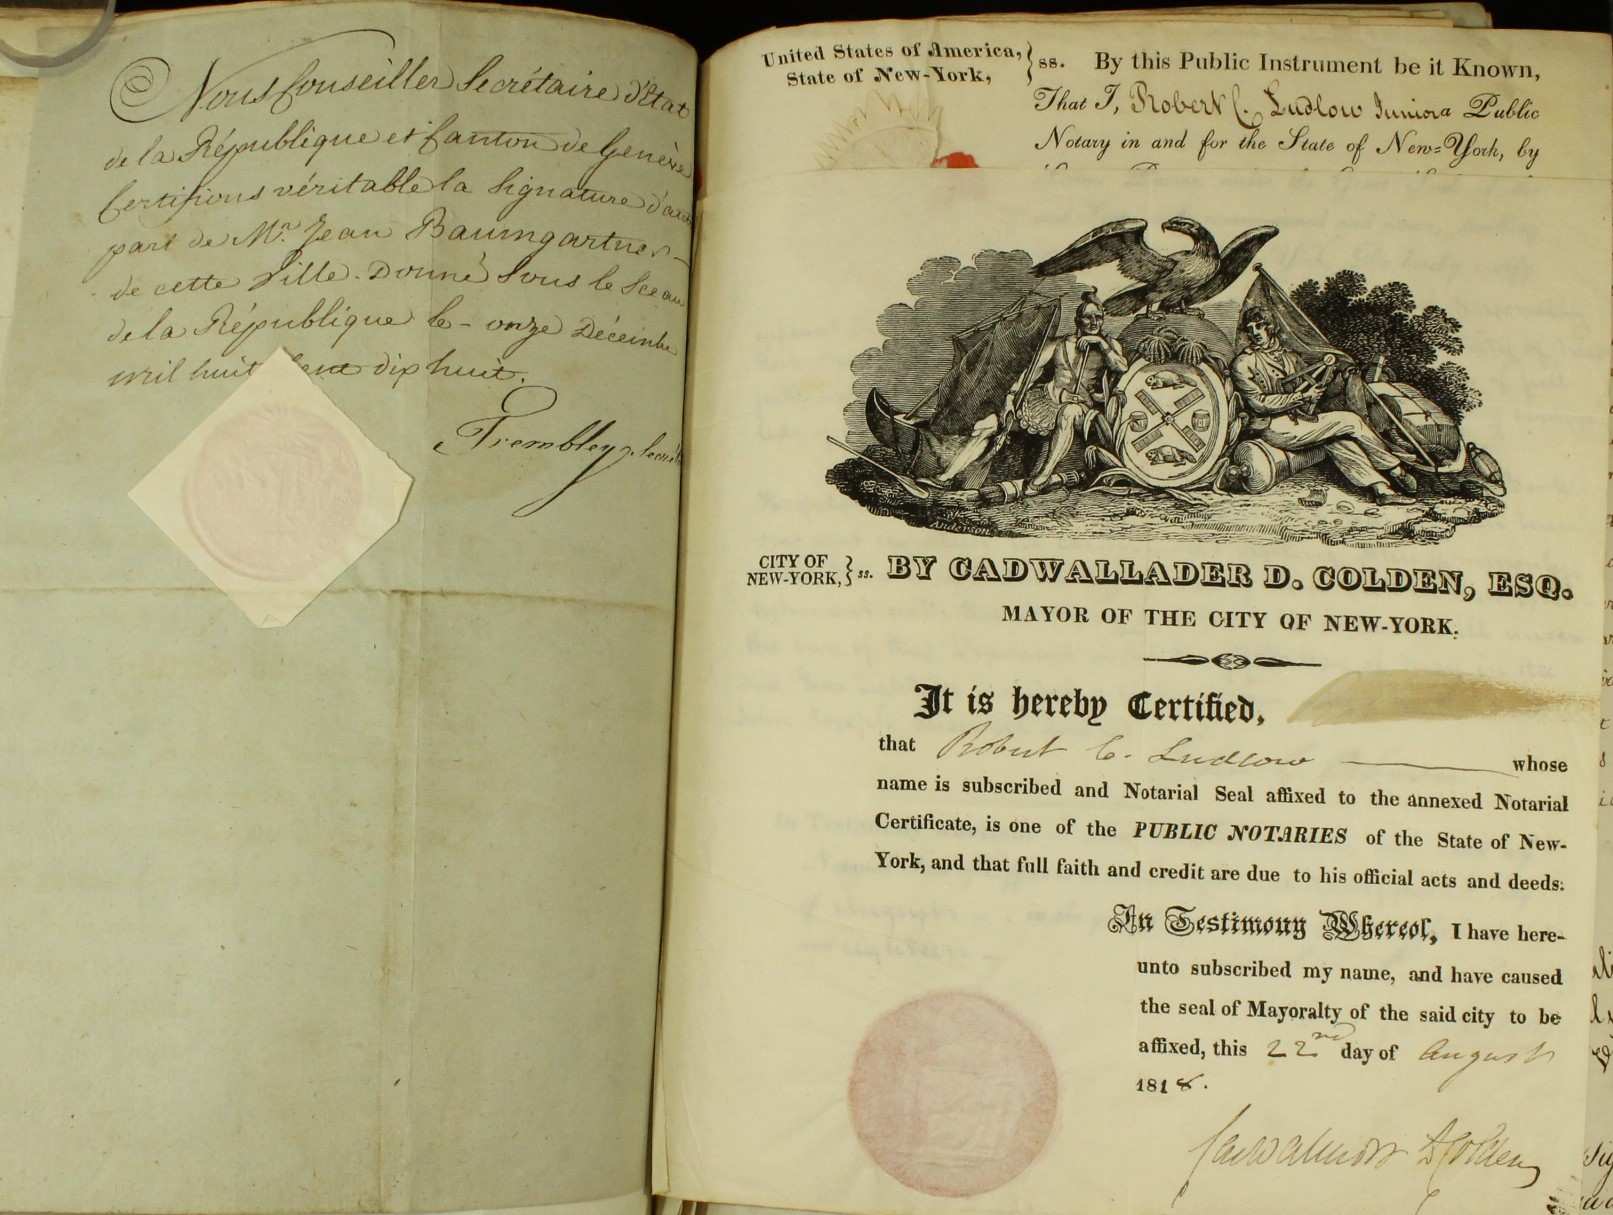 Nous Conseiller Secrétaire d'Etat
de la République et Canton de Genève
Certifions véritable la Signature d'autre
part de Mr. Jean Baumgartner
de cette Ville. Donné sous le Sceau
de la République le onze Décembre
mil huit Cent dix huit.
Trembley, Secré
United States of America,
State of New-York,
} ss. By this Public Instrument be it Known,
That I, Robert C. Ludlow Junior a Public
Notary in and for the State of New-York, by
Anderson
CITY OF
NEW-YORK,
} ss. BY CADWALLADER D. COLDEN, ESQ.
MAYOR OF THE CITY OF NEW-YORK.
It is hereby Certified,
that Robert C. Ludlow whose
name is subscribed and Notarial Seal affixed to the annexed Notarial
Certificate, is one of the PUBLIC NOTARIES of the State of New-
York, and that full faith and credit are due to his official acts and deeds.
In Testimony Whereof, I have here-
unto subscribed my name, and have caused
the seal of Mayoralty of the said city to be
affixed, this 22nd day of August
1818.
Cadwallader D Colden